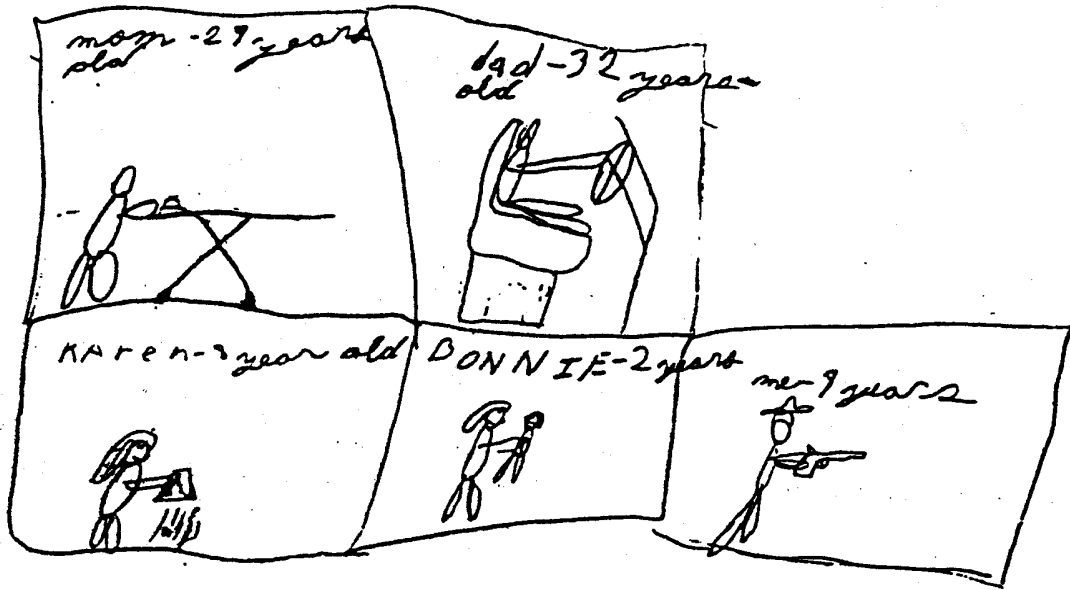 mom - 29 years
old
dad - 32 years
old
KAren - 8 year old
BONNIE - 2 years
me - 9 years